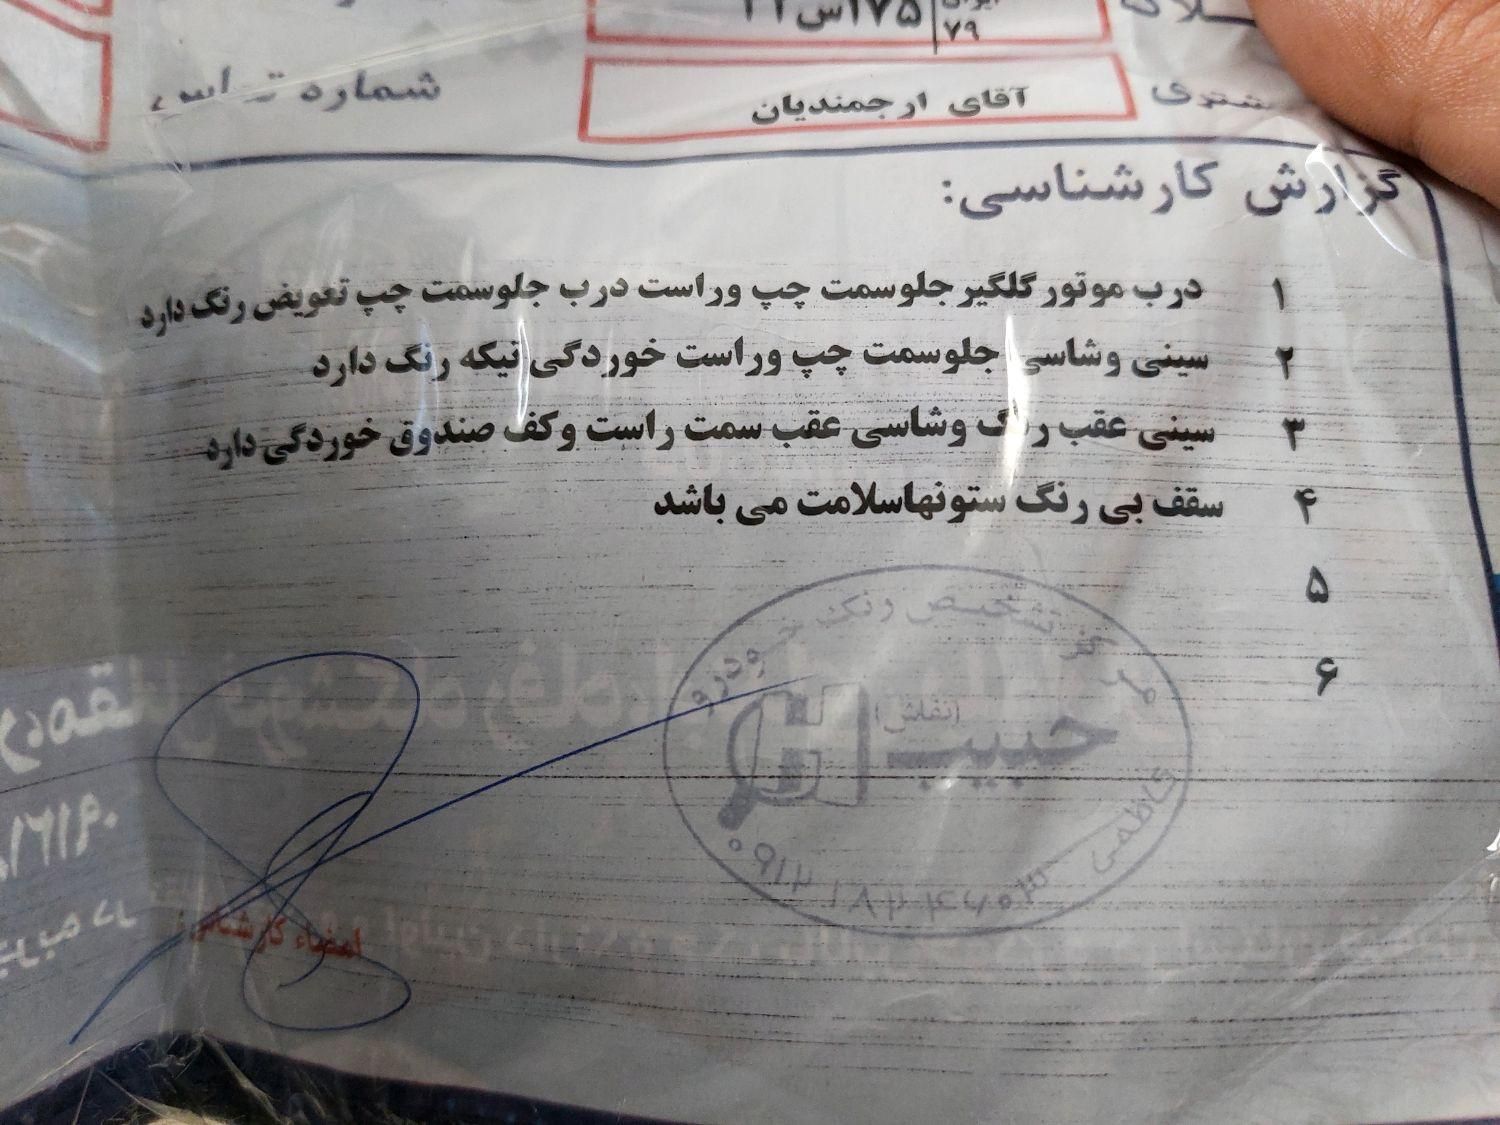 ایران
۷۹
۱۷۵س
آقای ارجمندیان
گزارش کارشناسی:
۱ درب موتور گلگیر جلوسمت چپ وراست درب جلوسمت چپ تعویض رنگ دارد
۲ سینی وشاسی جلوسمت چپ وراست خوردگی نیکه رنگ دارد
۳ سینی عقب رنگ وشاسی عقب سمت راست وکف صندوق خوردگی دارد
۴ سقف بی رنگ ستونهاسلامت می باشد
۵
۶
مرکز تشخیص رنگ خودرو
(نقاش)
حبیب
کاظمی
امضاء کارشناس: